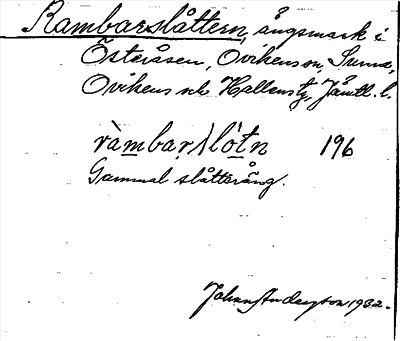 Rambarslåttern, ängsmark i
Österåsen, Ovikens sn, Sunne,
Ovikens och Hallens tg, Jämtl. l.
ràmbar\lȯtn 196
Gammal slåtteräng.
Johan Anderzton 1932.